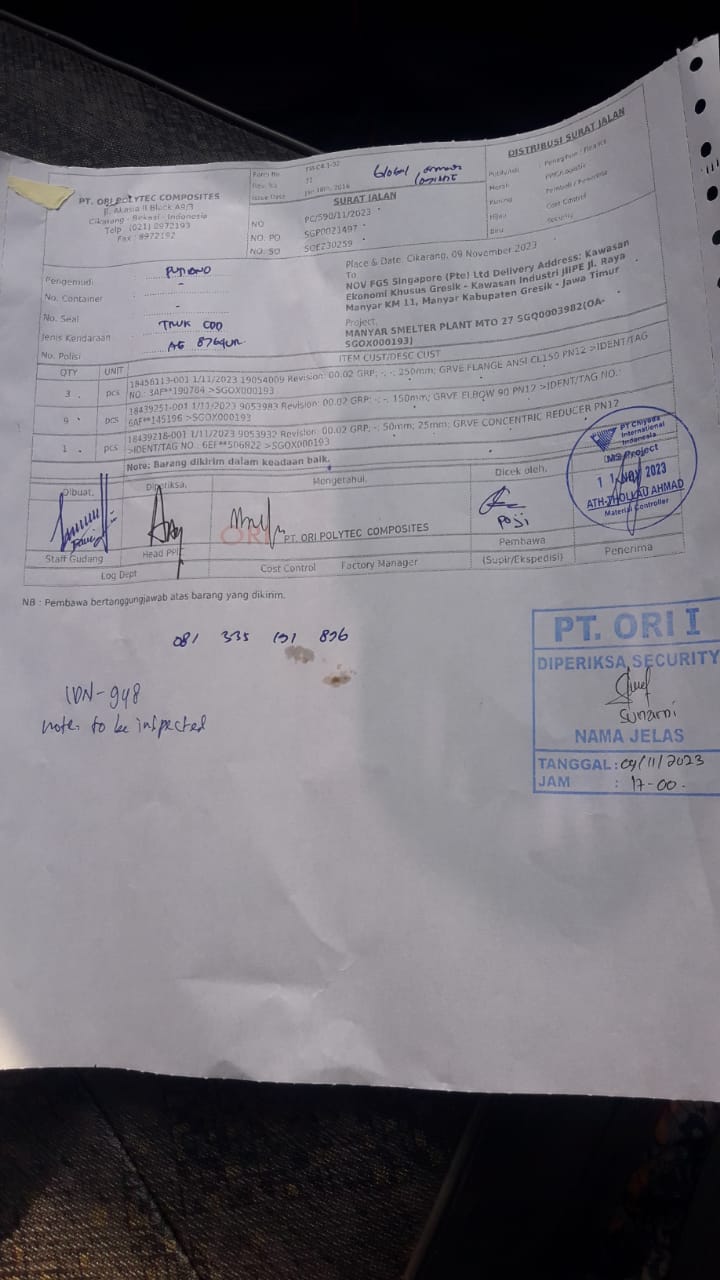 PT. ORI POLYTEC COMPOSITES
Jl. Akasia II Block A9/3
Cikarang - Bekasi - Indonesia
Telp : (021) 8972193
Fax : 8972192
Form No
Rev. No
Issue Date
Global
SURAT JALAN
NO PC/590/11/2023
NO. PO SGP0021497
NO. SO SOE230259
DISTRIBUSI SURAT JALAN
Merah
Kuning
Hijau
Biru
Cost Control
Security
Pengemudi
No. Container -
No. Seal -
Jenis Kendaraan TRUK CDD
No. Polisi
Place & Date. Cikarang, 09 November 2023
To
NOV FGS Singapore (Pte) Ltd Delivery Address: Kawasan
Ekonomi Khusus Gresik - Kawasan Industri JIIPE Jl. Raya
Manyar KM 11, Manyar Kabupaten Gresik - Jawa Timur
Project.
MANYAR SMELTER PLANT MTO 27 SGQ0003982(OA-
SGOX000193)
QTY UNIT ITEM CUST/DESC CUST
3 pcs 18456113-001 1/11/2023 19054009 Revision: 00.02 GRP; -; -; 250mm; GRVE FLANGE ANSI CL150 PN12 >IDENT/TAG
NO.: 3AF**190784 >SGOX000193
9 pcs 18439251-001 1/11/2023 9053983 Revision: 00.02 GRP; -; -; 150mm; GRVE ELBOW 90 PN12 >IDENT/TAG NO.:
6AF**145196 >SGOX000193
1 pcs 18439216-001 1/11/2023 9053932 Revision: 00.02 GRP; -; 50mm; 25mm; GRVE CONCENTRIC REDUCER PN12
>IDENT/TAG NO.: 6EF**506822 >SGOX000193
Note: Barang dikirim dalam keadaan baik.
Dibuat, Diperiksa, Mengetahui, Dicek oleh,
PT Chiyoda
International
Indonesia
MS Project
11 NOV 2023
Material Controller
ORI PT. ORI POLYTEC COMPOSITES
Poji
Staff Gudang Head PPIC Cost Control Factory Manager
Pembawa
(Supir/Ekspedisi)
Penerima
Log Dept
NB : Pembawa bertanggungjawab atas barang yang dikirim.
IDN-948
note. to be inspected
PT. ORI I
DIPERIKSA SECURITY
Sunarni
NAMA JELAS
TANGGAL : 09/11/2023
JAM : 17-00.